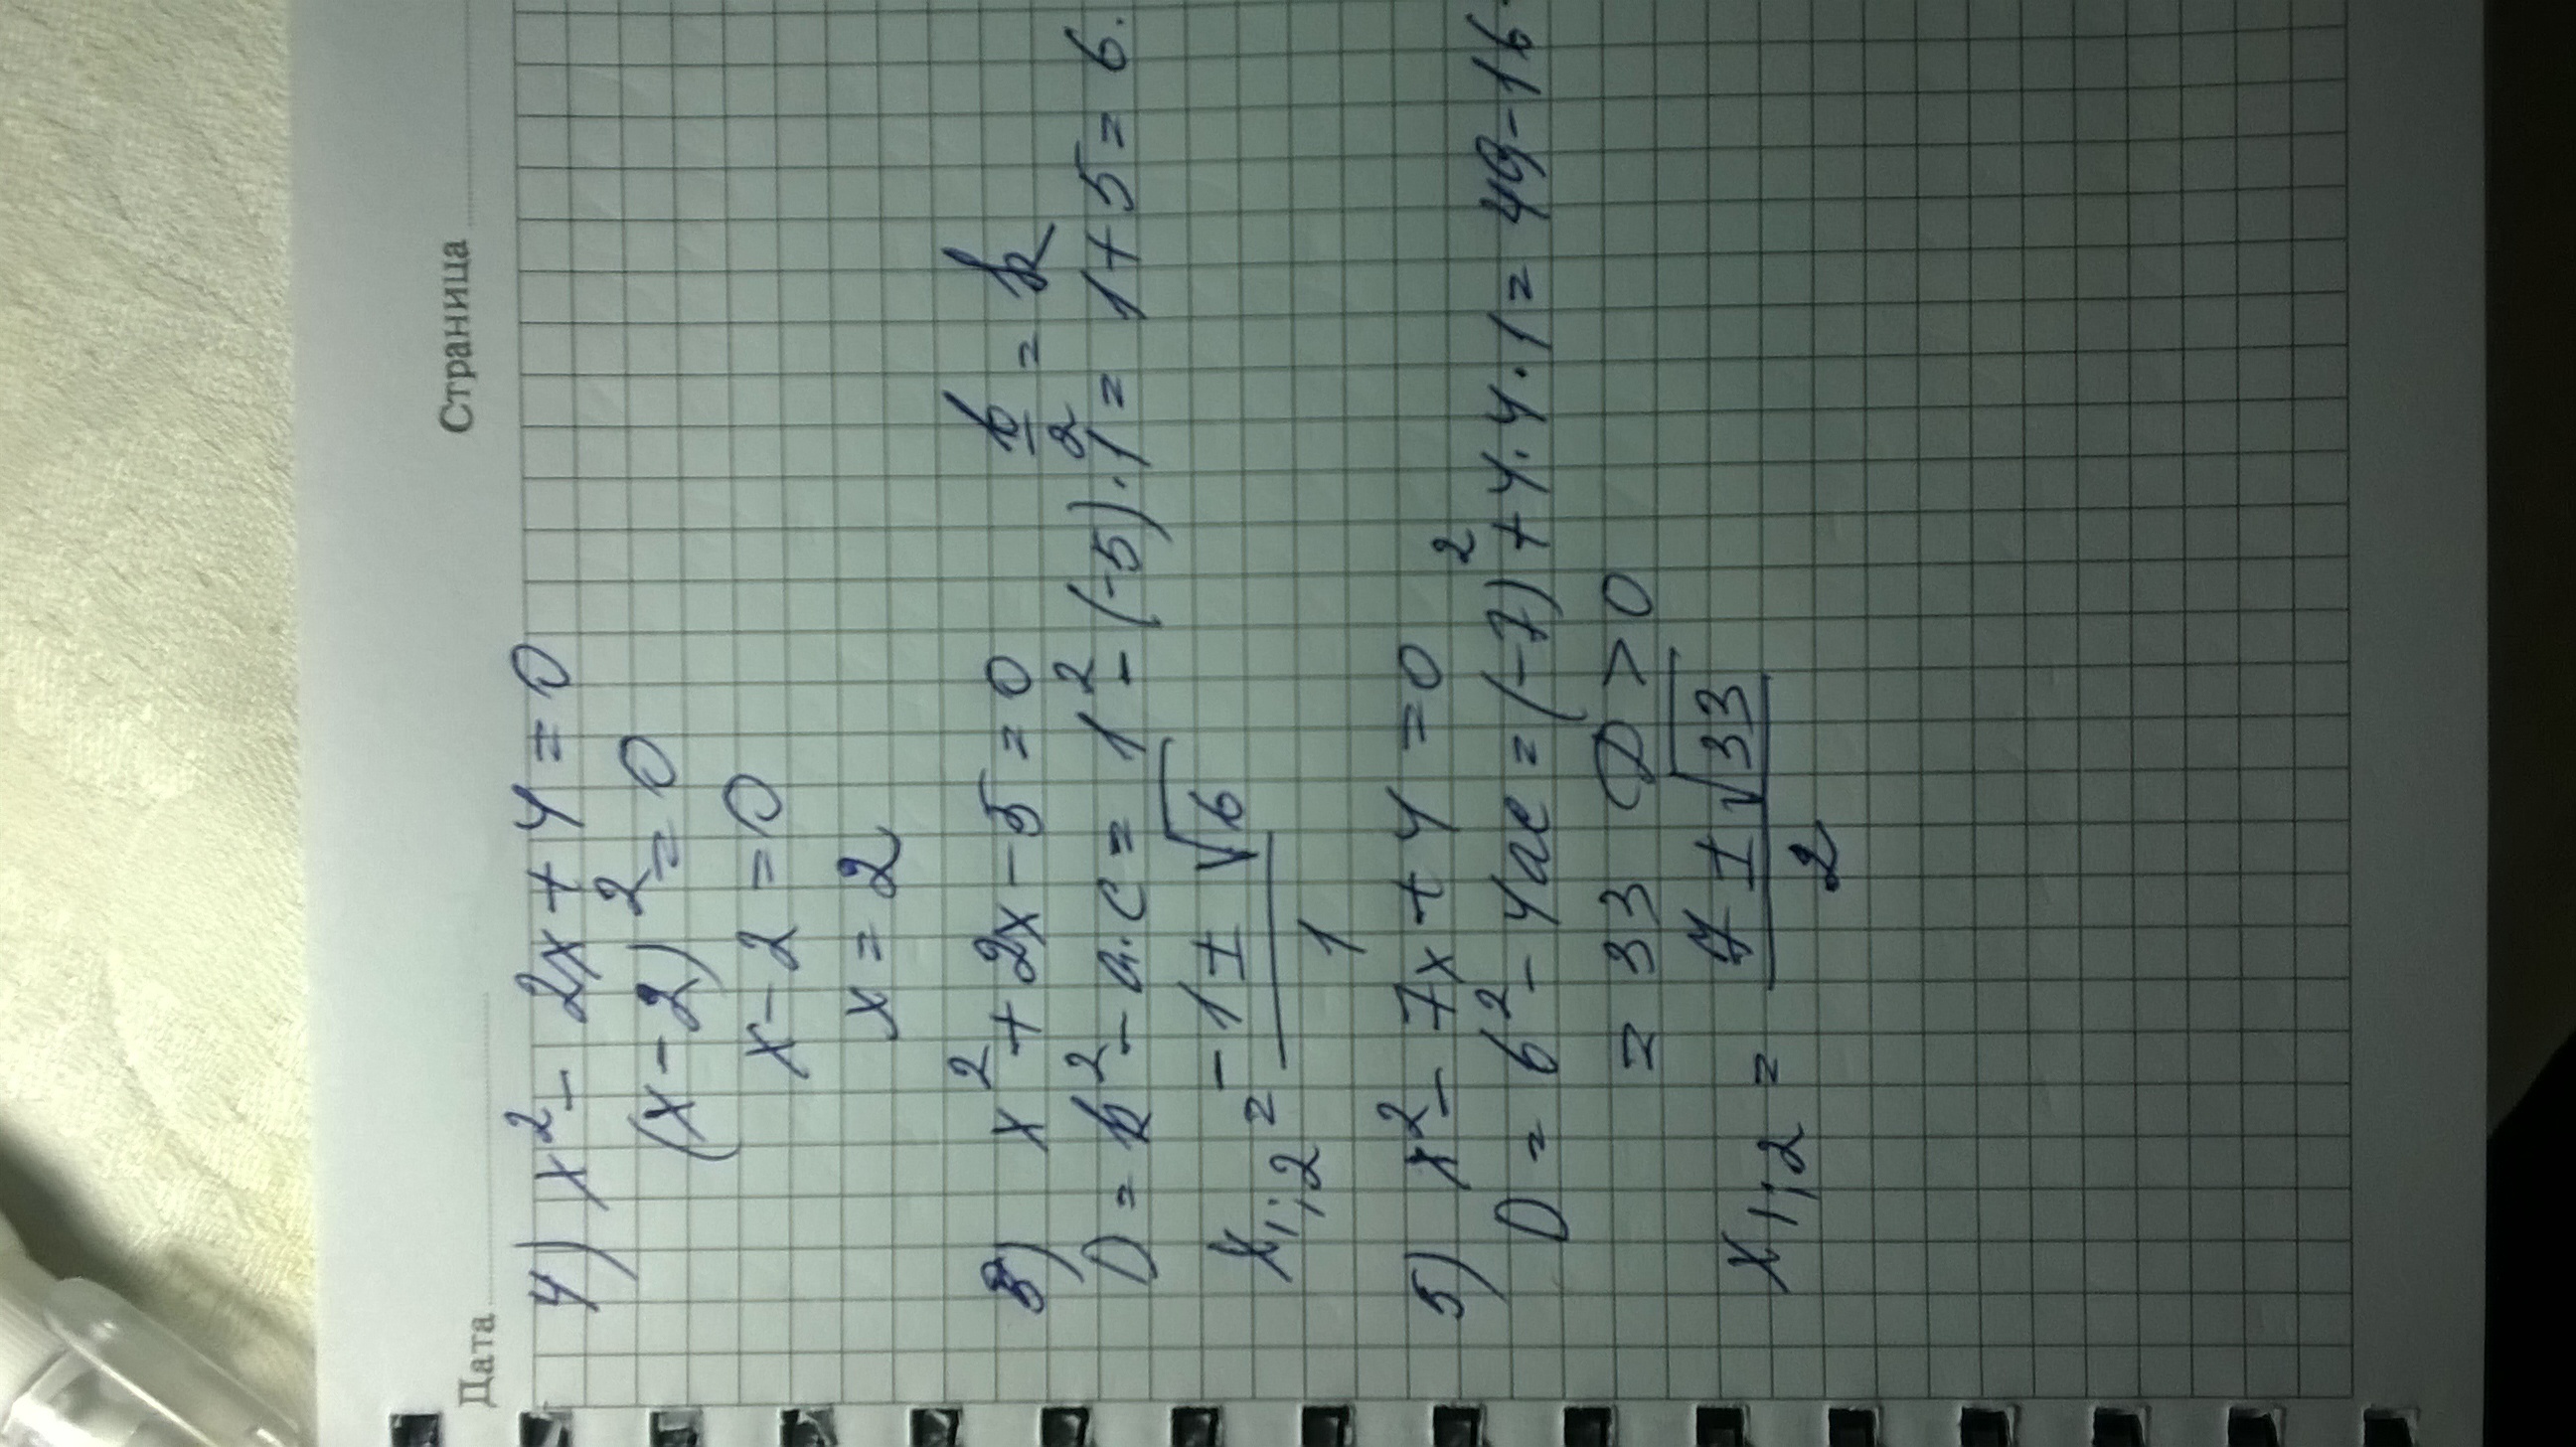 Дата Страница
4) x² - 2x + 4 = 0
(x - 2)² = 0
x - 2 = 0
x = 2
b/2 = k
3) x² + 2x - 5 = 0
D = k² - a·c = 1² - (-5)·1 = 1 + 5 = 6.
x₁;₂ = (-1 ± √6)/1
5) x² - 7x + 4 = 0
D = b² - 4ac = (-7)² + 4·4·1 = 49 - 16
= 33 D > 0
x₁;₂ = (7 ± √33)/2